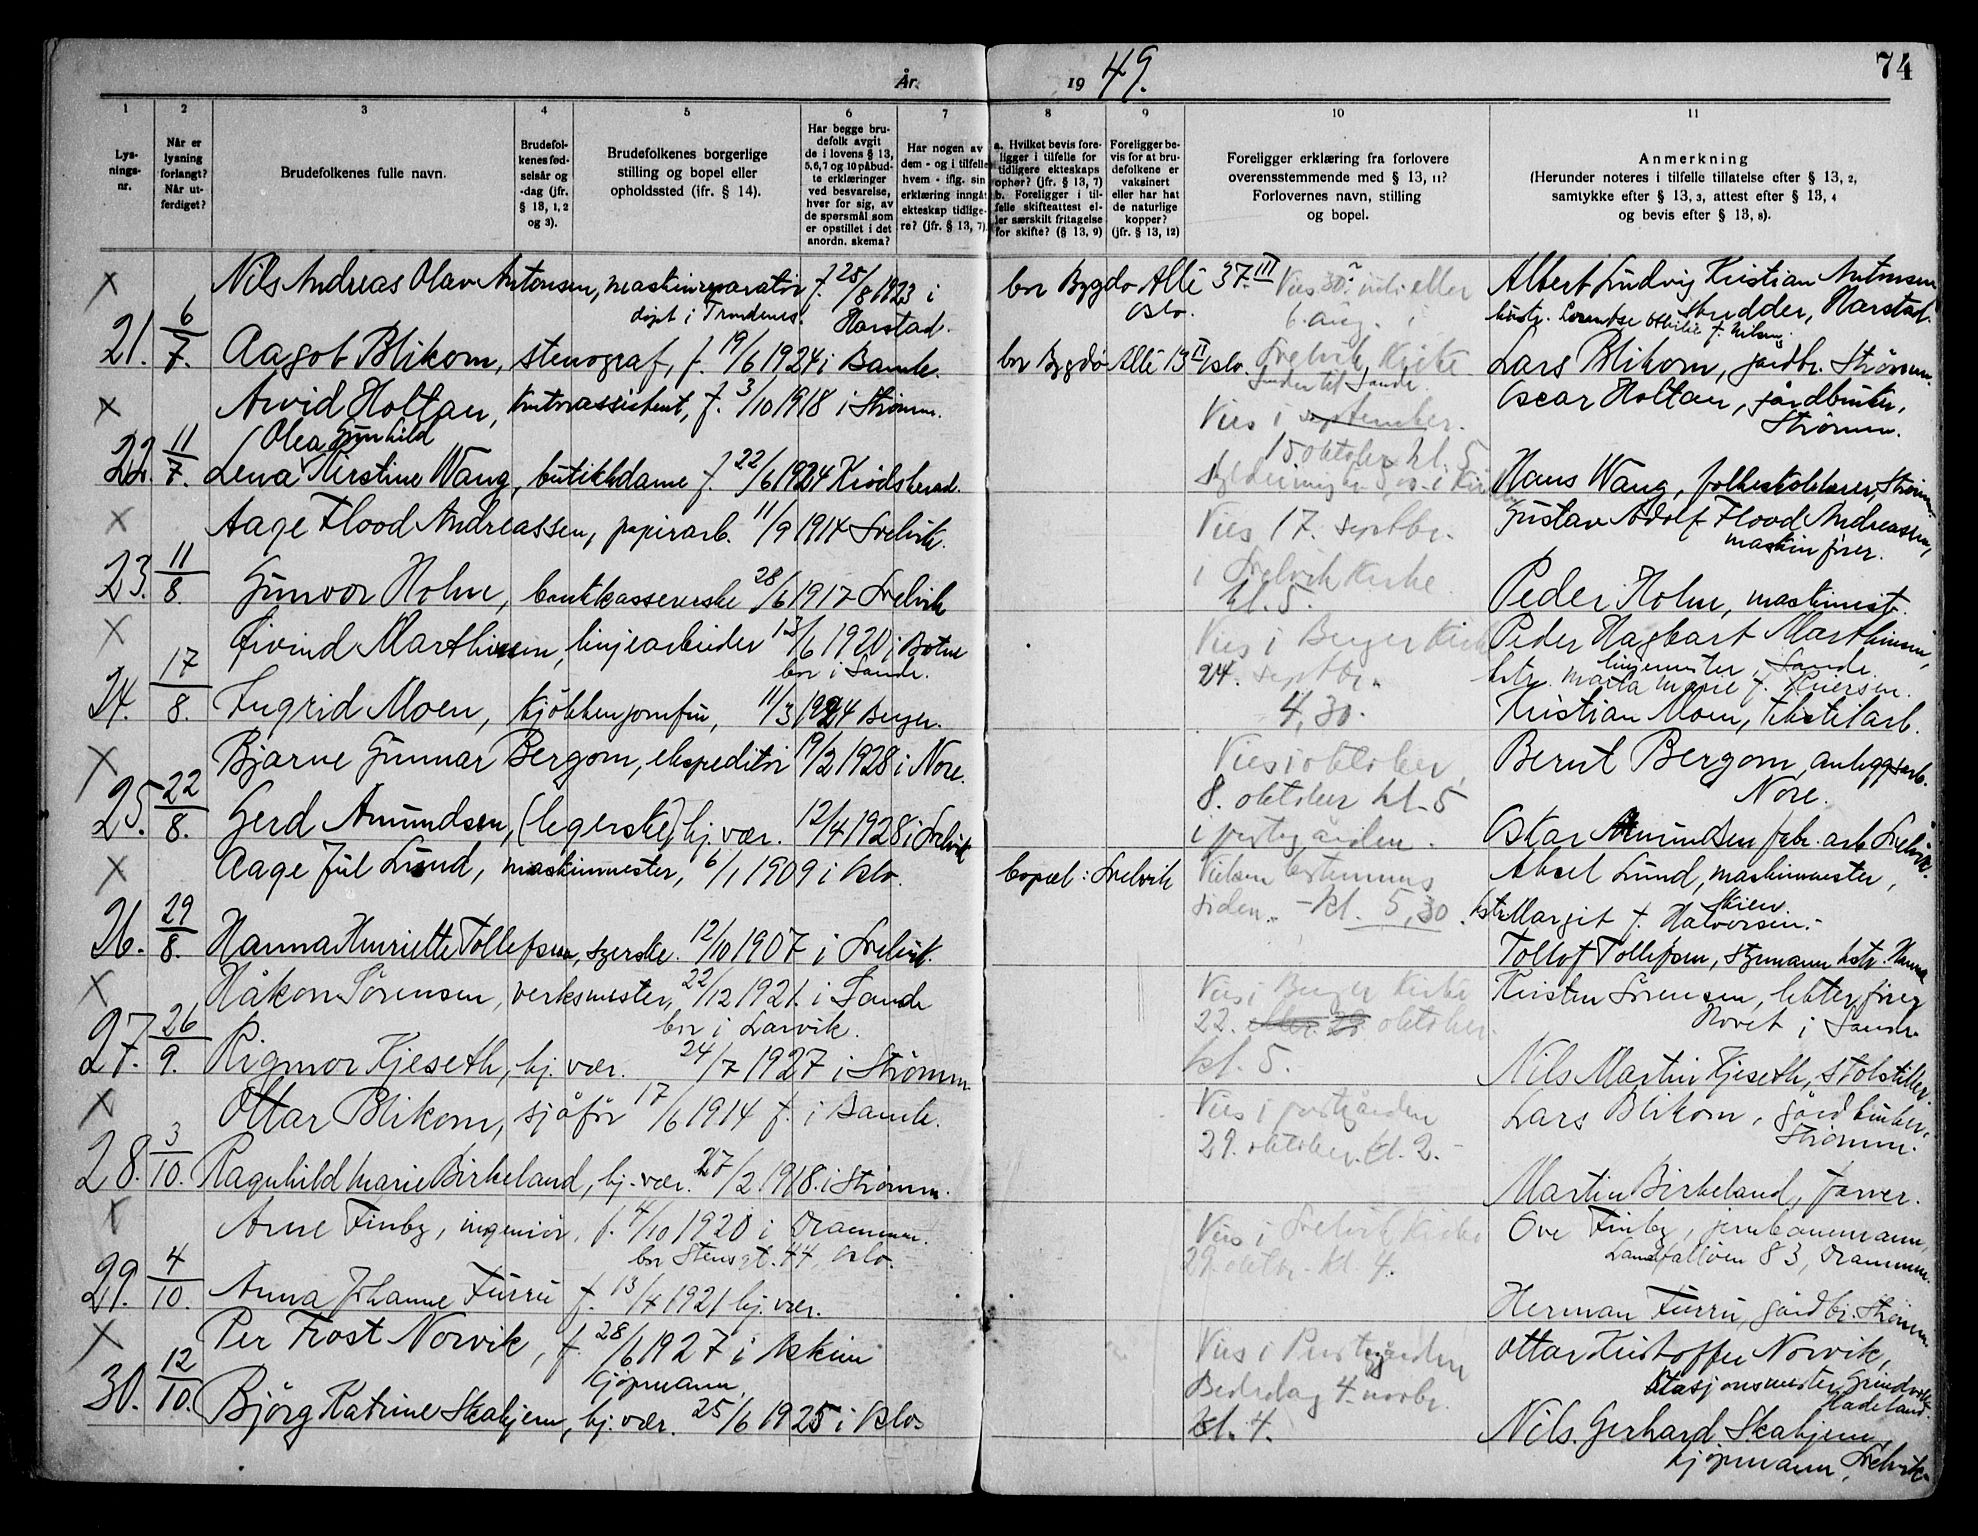 74
År 19 49.
1 2 3 4 5 6 7 8 9 10 11
Lys-
nings-
nr.
Når er
lysning
forlangt?
Når ut-
ferdiget?
Brudefolkenes fulle navn.
Brudefol-
kenes fød-
selsår og
-dag (jfr.
§ 13, 1, 2
og 3).
Brudefolkenes borgerlige
stilling og bopel eller
opholdssted (jfr. § 14).
Har begge bru-
defolk avgit
de i lovens § 13,
5,6,7 og 10 påbud-
te erklæringer
ved besvarelse,
hver for sig, av
de spørsmål som
er opstillet i det
anordn. skema?
Har nogen av
dem - og i tilfelle
hvem - iflg. sin
erklæring inngåt
ekteskap tidlige-
re? (jfr. § 13, 7).
a. Hvilket bevis fore-
ligger i tilfelle for
tidligere ekteskaps
ophør? (jfr. § 13, 7)
b. Foreligger i til-
felle skifteattest el-
ler særskilt fritagelse
for skifte? (§ 13, 9)
Foreligger be-
vis for at bru-
defolkene er
vaksinert
eller har hat
de naturlige
kopper?
(jfr. § 13, 12)
Foreligger erklæring fra forlovere
overensstemmende med § 13, 11?
Forlovernes navn, stilling
og bopel.
Anmerkning
(Herunder noteres i tilfelle tillatelse efter § 13, 2,
samtykke efter § 13, 3, attest efter § 13, 4
og bevis efter § 13, 8).
x Nils Andreas Olav Antonsen, maskinreparatör f. 25/8 1923 i bor Bygdö Allé 37 III Vies 30. juli eller Albert Ludvig Kristian Antonsen
döpt i Trondenes. Harstad. Oslo. 6. aug. skredder, Harstad.
21. 6/7. Aagot Blikom, stenograf, f. 19/6 1924 i Bamle. bor Bygdö Allé 13 II Oslo. Svelvik Kirke Lars Blikom, gårdbr. Strömm.
x Arvid Holtan, kontorassistent, f. 3/10 1918 i Strömm. Vies i september. Oscar Holtan, gårdbruker,
Strömm.
Olea Gunhild 15 oktober kl. 5
22. 11/7. Lena Kirstine Wang, butikkdame f. 22/6 1924 Krödsherad. Hans Wang, folkeskolelærer, Strömm.
x Aage Flood Andreassen, papirarb. 11/9 1914 Svelvik. Vies 17. septbr. Gustav Adolf Flood Andreassen,
maskinfører.
23. 11/8. Gunvor Holm, butikkassererske 28/6 1917 Svelvik i Svelvik Kirke kl. 5. Peder Holm, maskinist.
x Øivind Marthinsen, linjearbeider 13/6 1920 i Botne Vies i Berger Kirke Peder Hagbart Marthinsen,
bor i Sande. 24. septbr. linjemester, Sande.
hstr. Marta Marie f.
24. 17/8. Ingrid Moen, kjökkenjomfru, 11/3 1924 Berger. 4,30. Kristian Moen, tekstilarb.
x Bjarne Gunnar Bergom, ekspeditör 19/2 1928 i Nore. Vies i oktober, Bernt Bergom, anleggsarb.
Nore.
25. 22/8. Gerd Amundsen, hj. vær. 12/4 1928 i Svelvik 8. oktober kl. 5 Oskar Amundsen fabr. arb. Svelvik.
i prestegården.
x Aage Juel Lund, maskinmester, 6/1 1909 i Oslo. bopæl: Svelvik Vielsen bestemmes Aksel Lund, maskinmester,
siden. - kl. 5,30. Skien
hstr. Margit f. Halvorsen.
26. 29/8. Hanna Henriette Tollefsen, syerske. 12/10 1907 i Svelvik. Tollof Tollefsen, styrmann hstr. Hanna
x Håkon Sörensen, verksmester, 22/12 1921. i Sande Vies i Berger Kirke Kristen Sörensen,
bor i Larvik. 22. eller 29. oktober. Hovet i Sande
27. 26/9. Rigmor Kjeseth, hj. vær. 24/7 1927 i Strömm kl. 5. Nils Martin Kjeseth,
x Ottar Blikom, sjåför 17/6 1914 f. i Bamle. Vies i prestgården Lars Blikom, gårdbruker,
29. oktober. kl. 2. Strömm.
28. 3/10. Ragnhild Marie Birkeland, hj. vær. 27/2 1918. i Strömm. Martin Birkeland, farver.
x Arne Finby, ingeniör, f. 4/10 1920 i Drammen. Vies i Svelvik Kirke Ove Finby, jernbanemann,
bor Stensgt. 44, Oslo. 29. oktbr. kl. 4. Landfallöen 83, Drammen.
29. 4/10. Anna Johanne Furru f. 13/4 1921 hj. vær. Herman Furru, gårdbr. Strömm
x Per Frost Norvik, f. 28/6 1927 i Askim Vies i Prestegården Ottar Kristoffer Norvik,
kjöpmann, Bededag 4. novbr. stasjonsmester,
Hadeland.
30. 12/10. Björg Katrine Skahjem, hj. vær. 25/6 1925 i Oslo kl. 4. Nils Gerhard Skahjem,
kjöpmann, Svelvik.